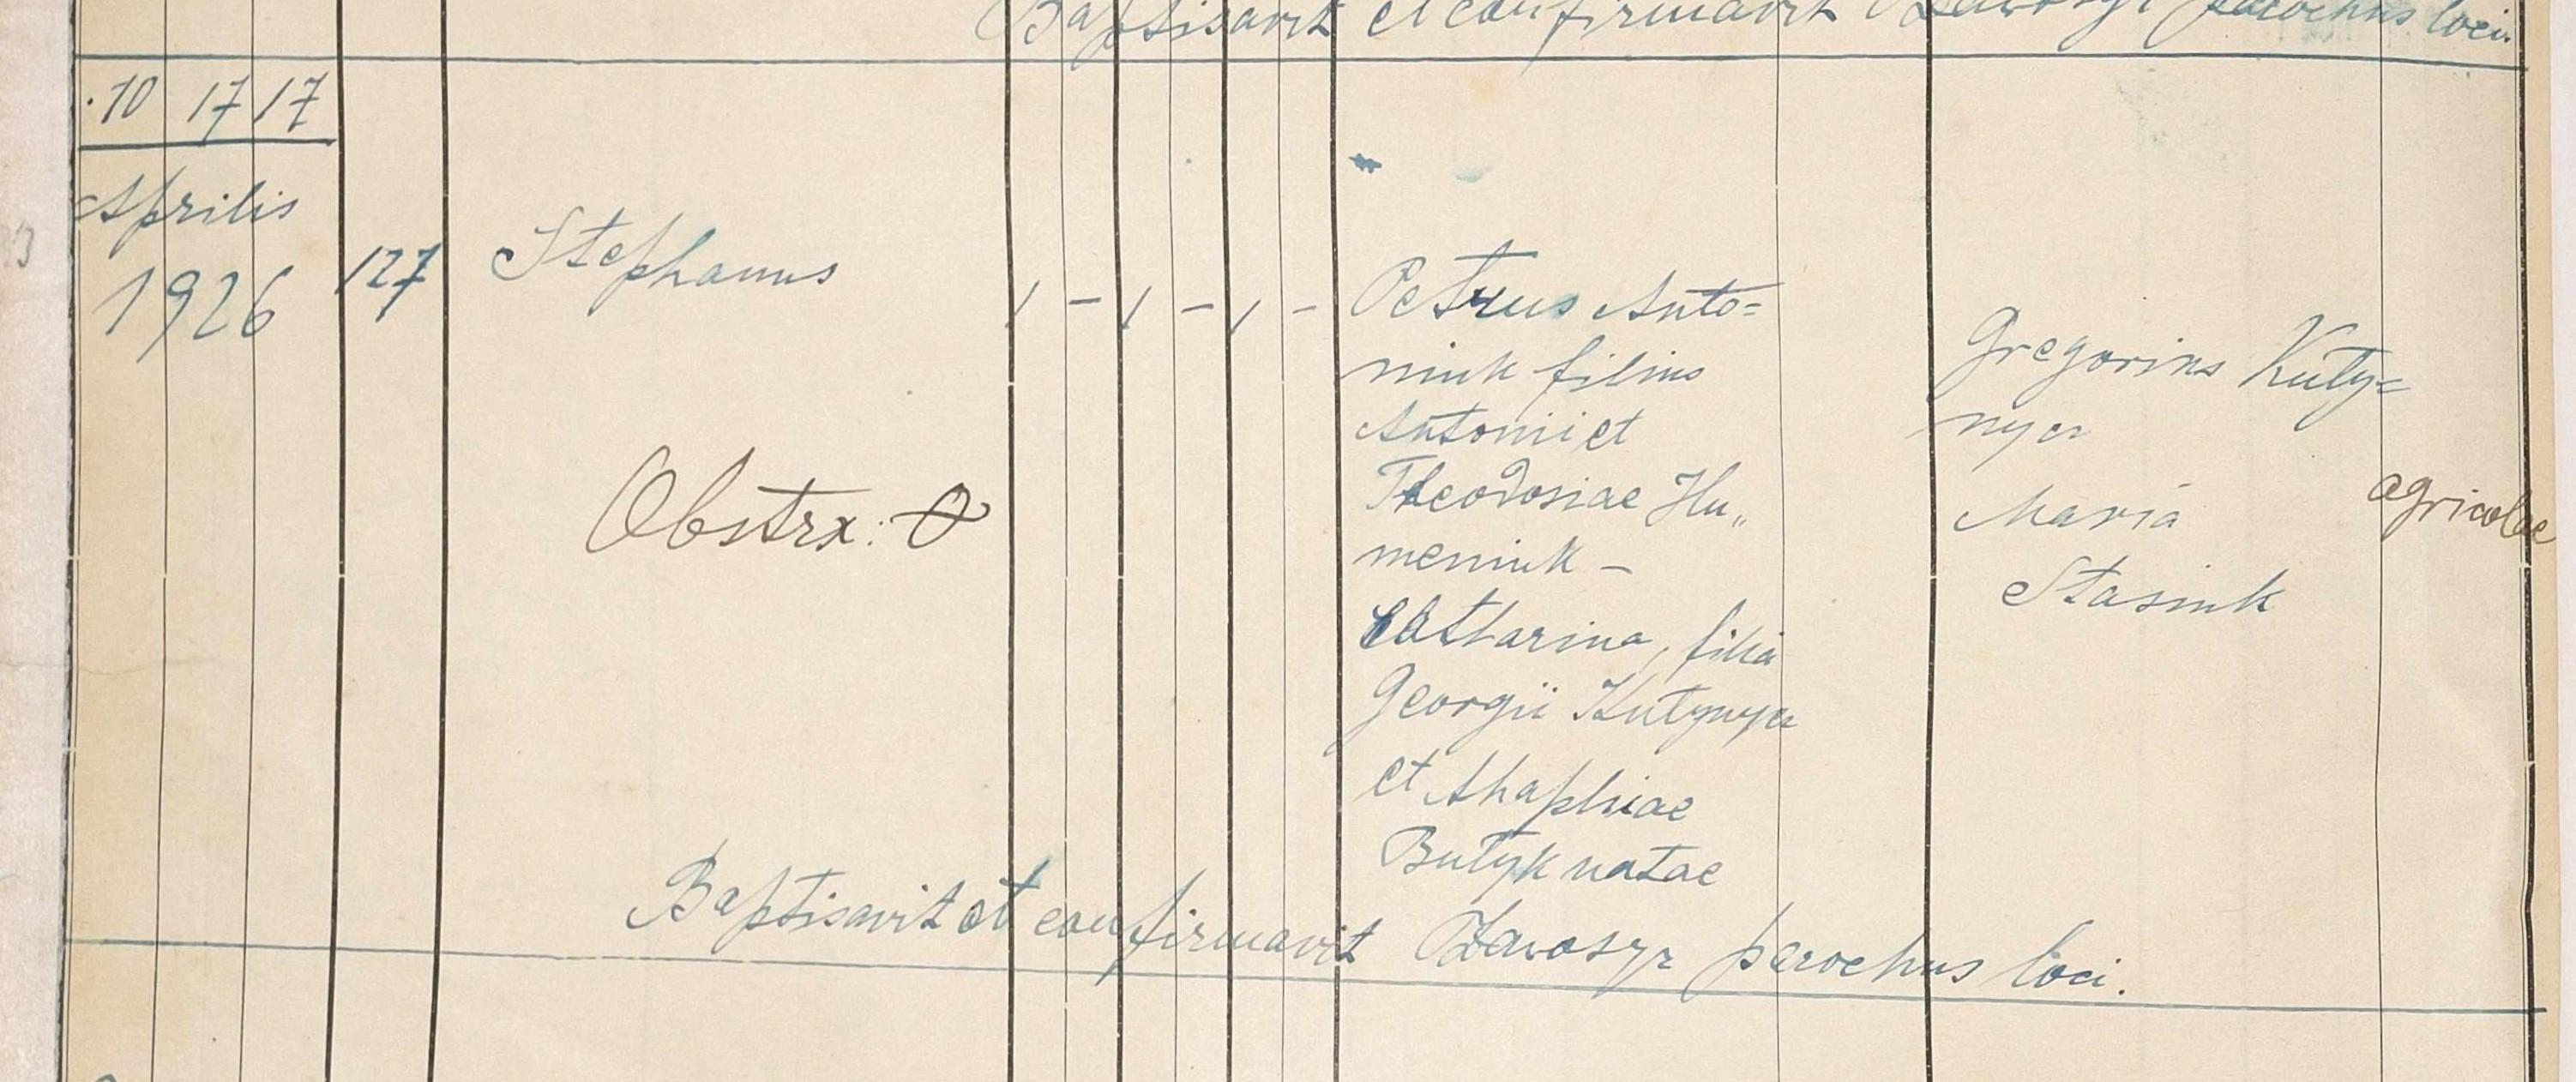 Baptisavit et confirmavit parochus loci.
10 17 17
Aprilis
1926
127
Stephanus
1 - 1 - 1 -
Petrus Anto=
niuk filius
Antonii et
Theodosiae Hu„
meniuk -
Catharina, filia
Georgii Kutynyer
et Ahaphiae
Butyk natae
Gregorius Kuty=
nyer
Maria
Stasiuk
agricolae
Obstrx:
Baptisavit et confirmavit parochus loci.